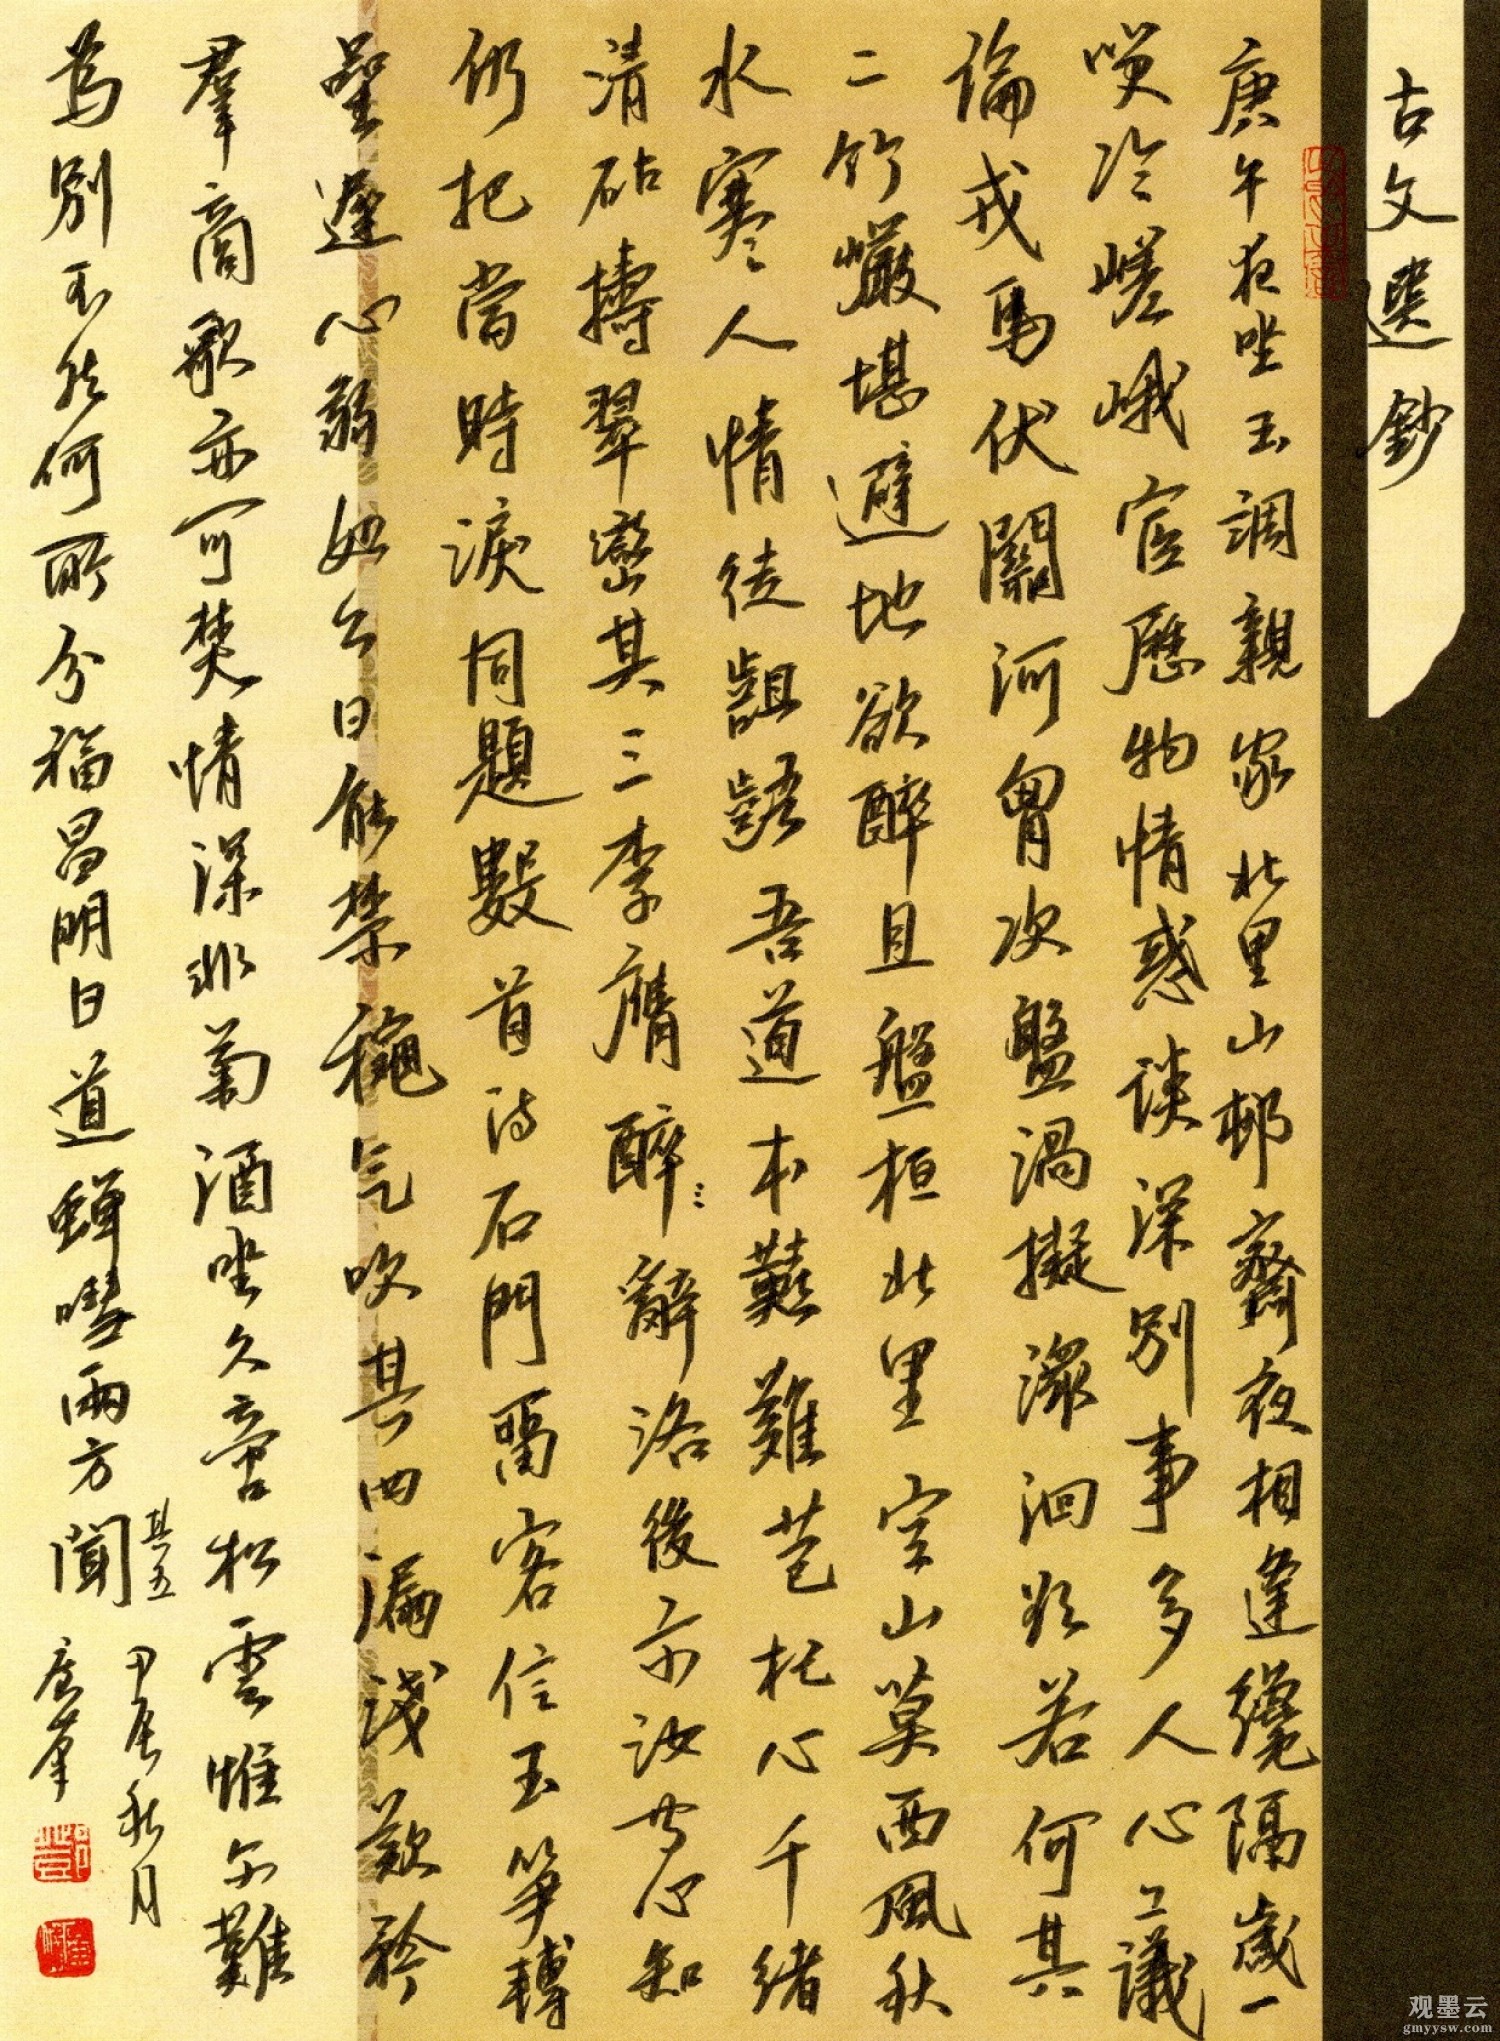 古文選鈔
庚午夜坐玉調親家北里山邨齋夜相逢纔隔歲一
哭泠嵯峨宦歷物情惑談深別事多人心工議
論戎馬伏關河胃次盤渦擬瀠洄玆若何其
二竹巖堪避地欲醉且盤桓北里空山莫西風秋
水寒人情徒齟齬吾道本艱難苞杞心千緒
清砧搗翠巒其三李膺醉辭洛後示汝苦心知
仍把當時淚同題數首詩石門留客信玉箏轉
星遲心弱如今日能禁穐气吹其四漏淺歎矜
羣商歌亦可焚情深非菊酒坐久啻松雲惟分難
為別不知何所分福昌明日道蟬噬兩方聞其五
甲辰秋月
唐峯
观墨云
gmyysw.com